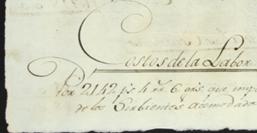 Costos de la Labor
Por 2142 ps 4 rr 6 grs que imp
de los Sirbientes acomodado